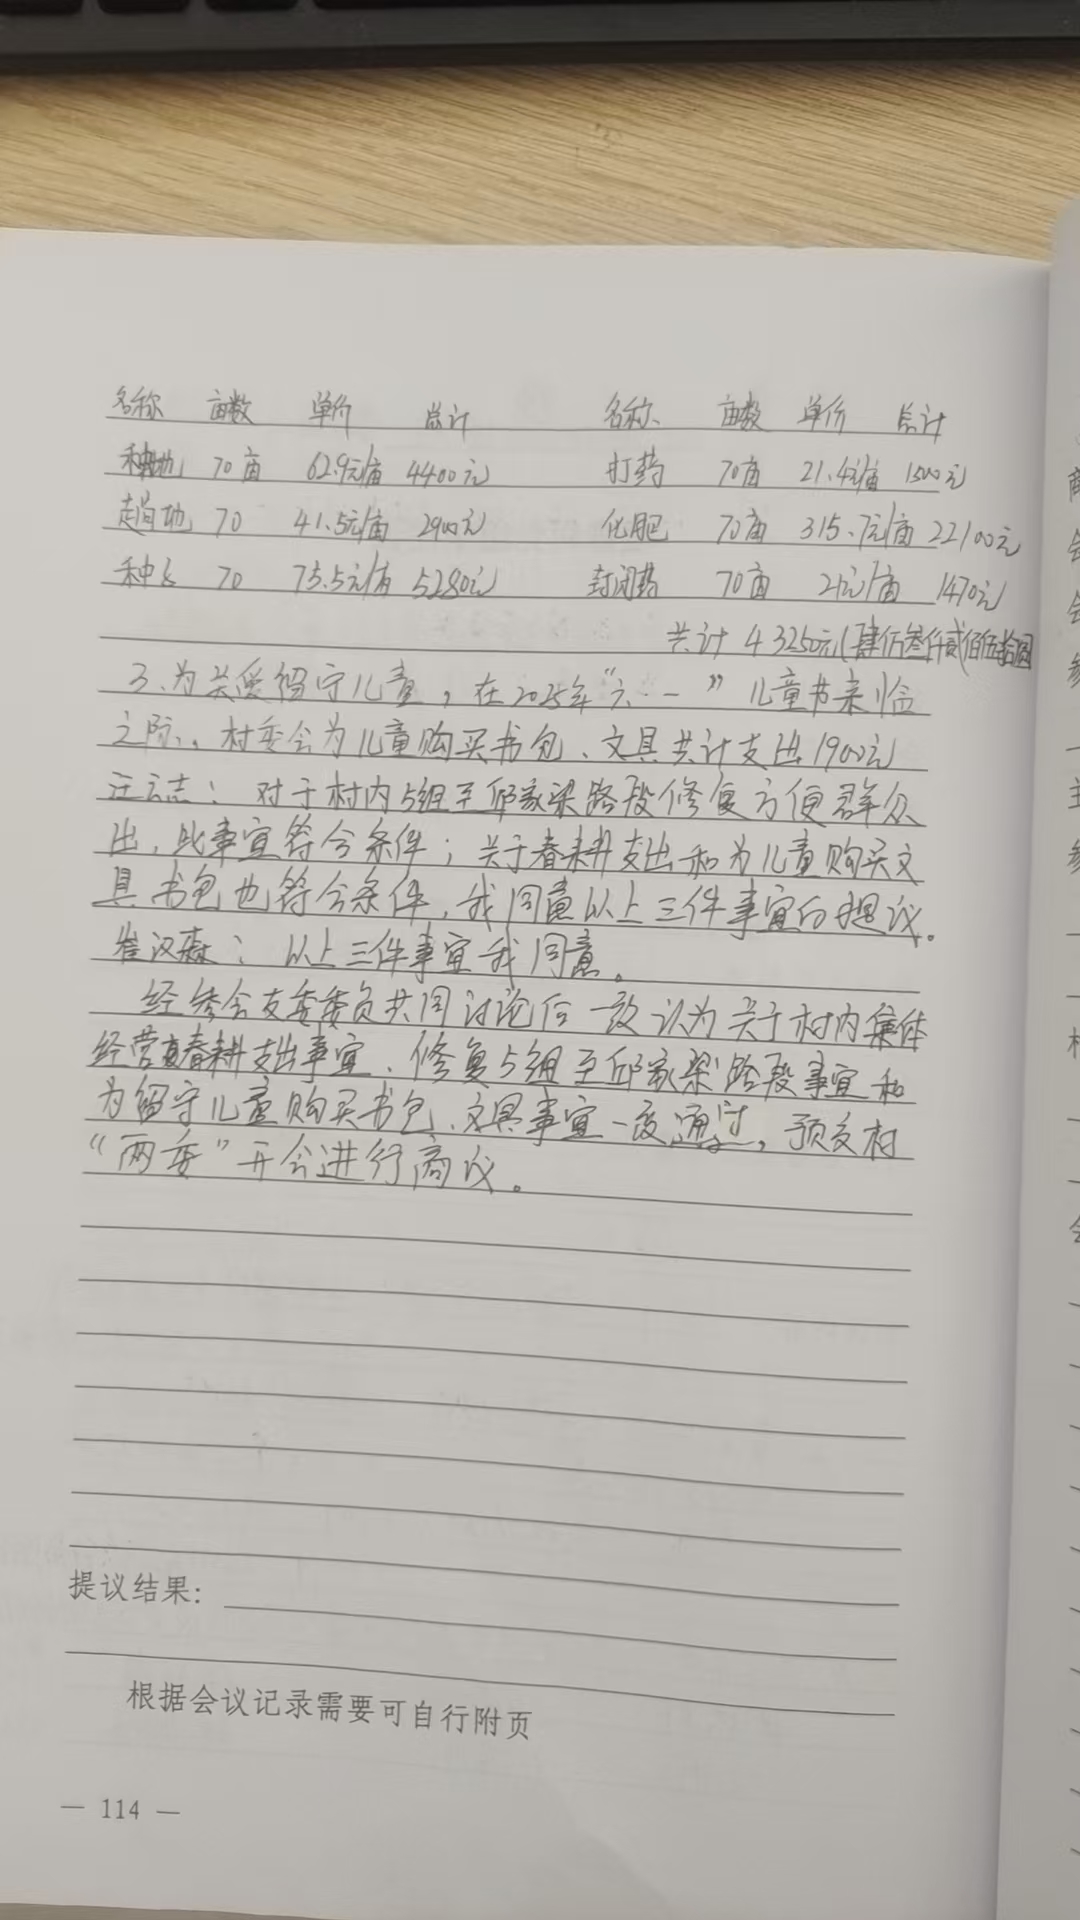 名称 亩数 单价 总计 名称 亩数 单价 总计
种地 70亩 62.9元/亩 4400元 打药 70亩 21.4元/亩 1500元
趟地 70 41.5元/亩 2900元 化肥 70亩 315.7元/亩 22100元
种子 70 75.5元/亩 5280元 封闭药 70亩 21元/亩 1470元
共计 43250元(肆仟叁仟贰佰伍拾圆
3、为关爱留守儿童，在2025年“六·一”儿童节来临
之际、村委会为儿童购买书包、文具共计支出1900元
汪云志：对于村内5组至邱家梁路段修复方便群众
出，此事宜符合条件；关于春耕支出和为儿童购买文
具书包也符合条件，我同意以上三件事宜的提议。
崔汉森：以上三件事宜我同意。
经参会支委委员共同讨论后一致认为关于村内集体
经营春耕支出事宜、修复5组至邱家梁路段事宜和
为留守儿童购买书包、文具事宜一致通过，预交村
“两委”开会进行商议。
提议结果：
根据会议记录需要可自行附页
— 114 —